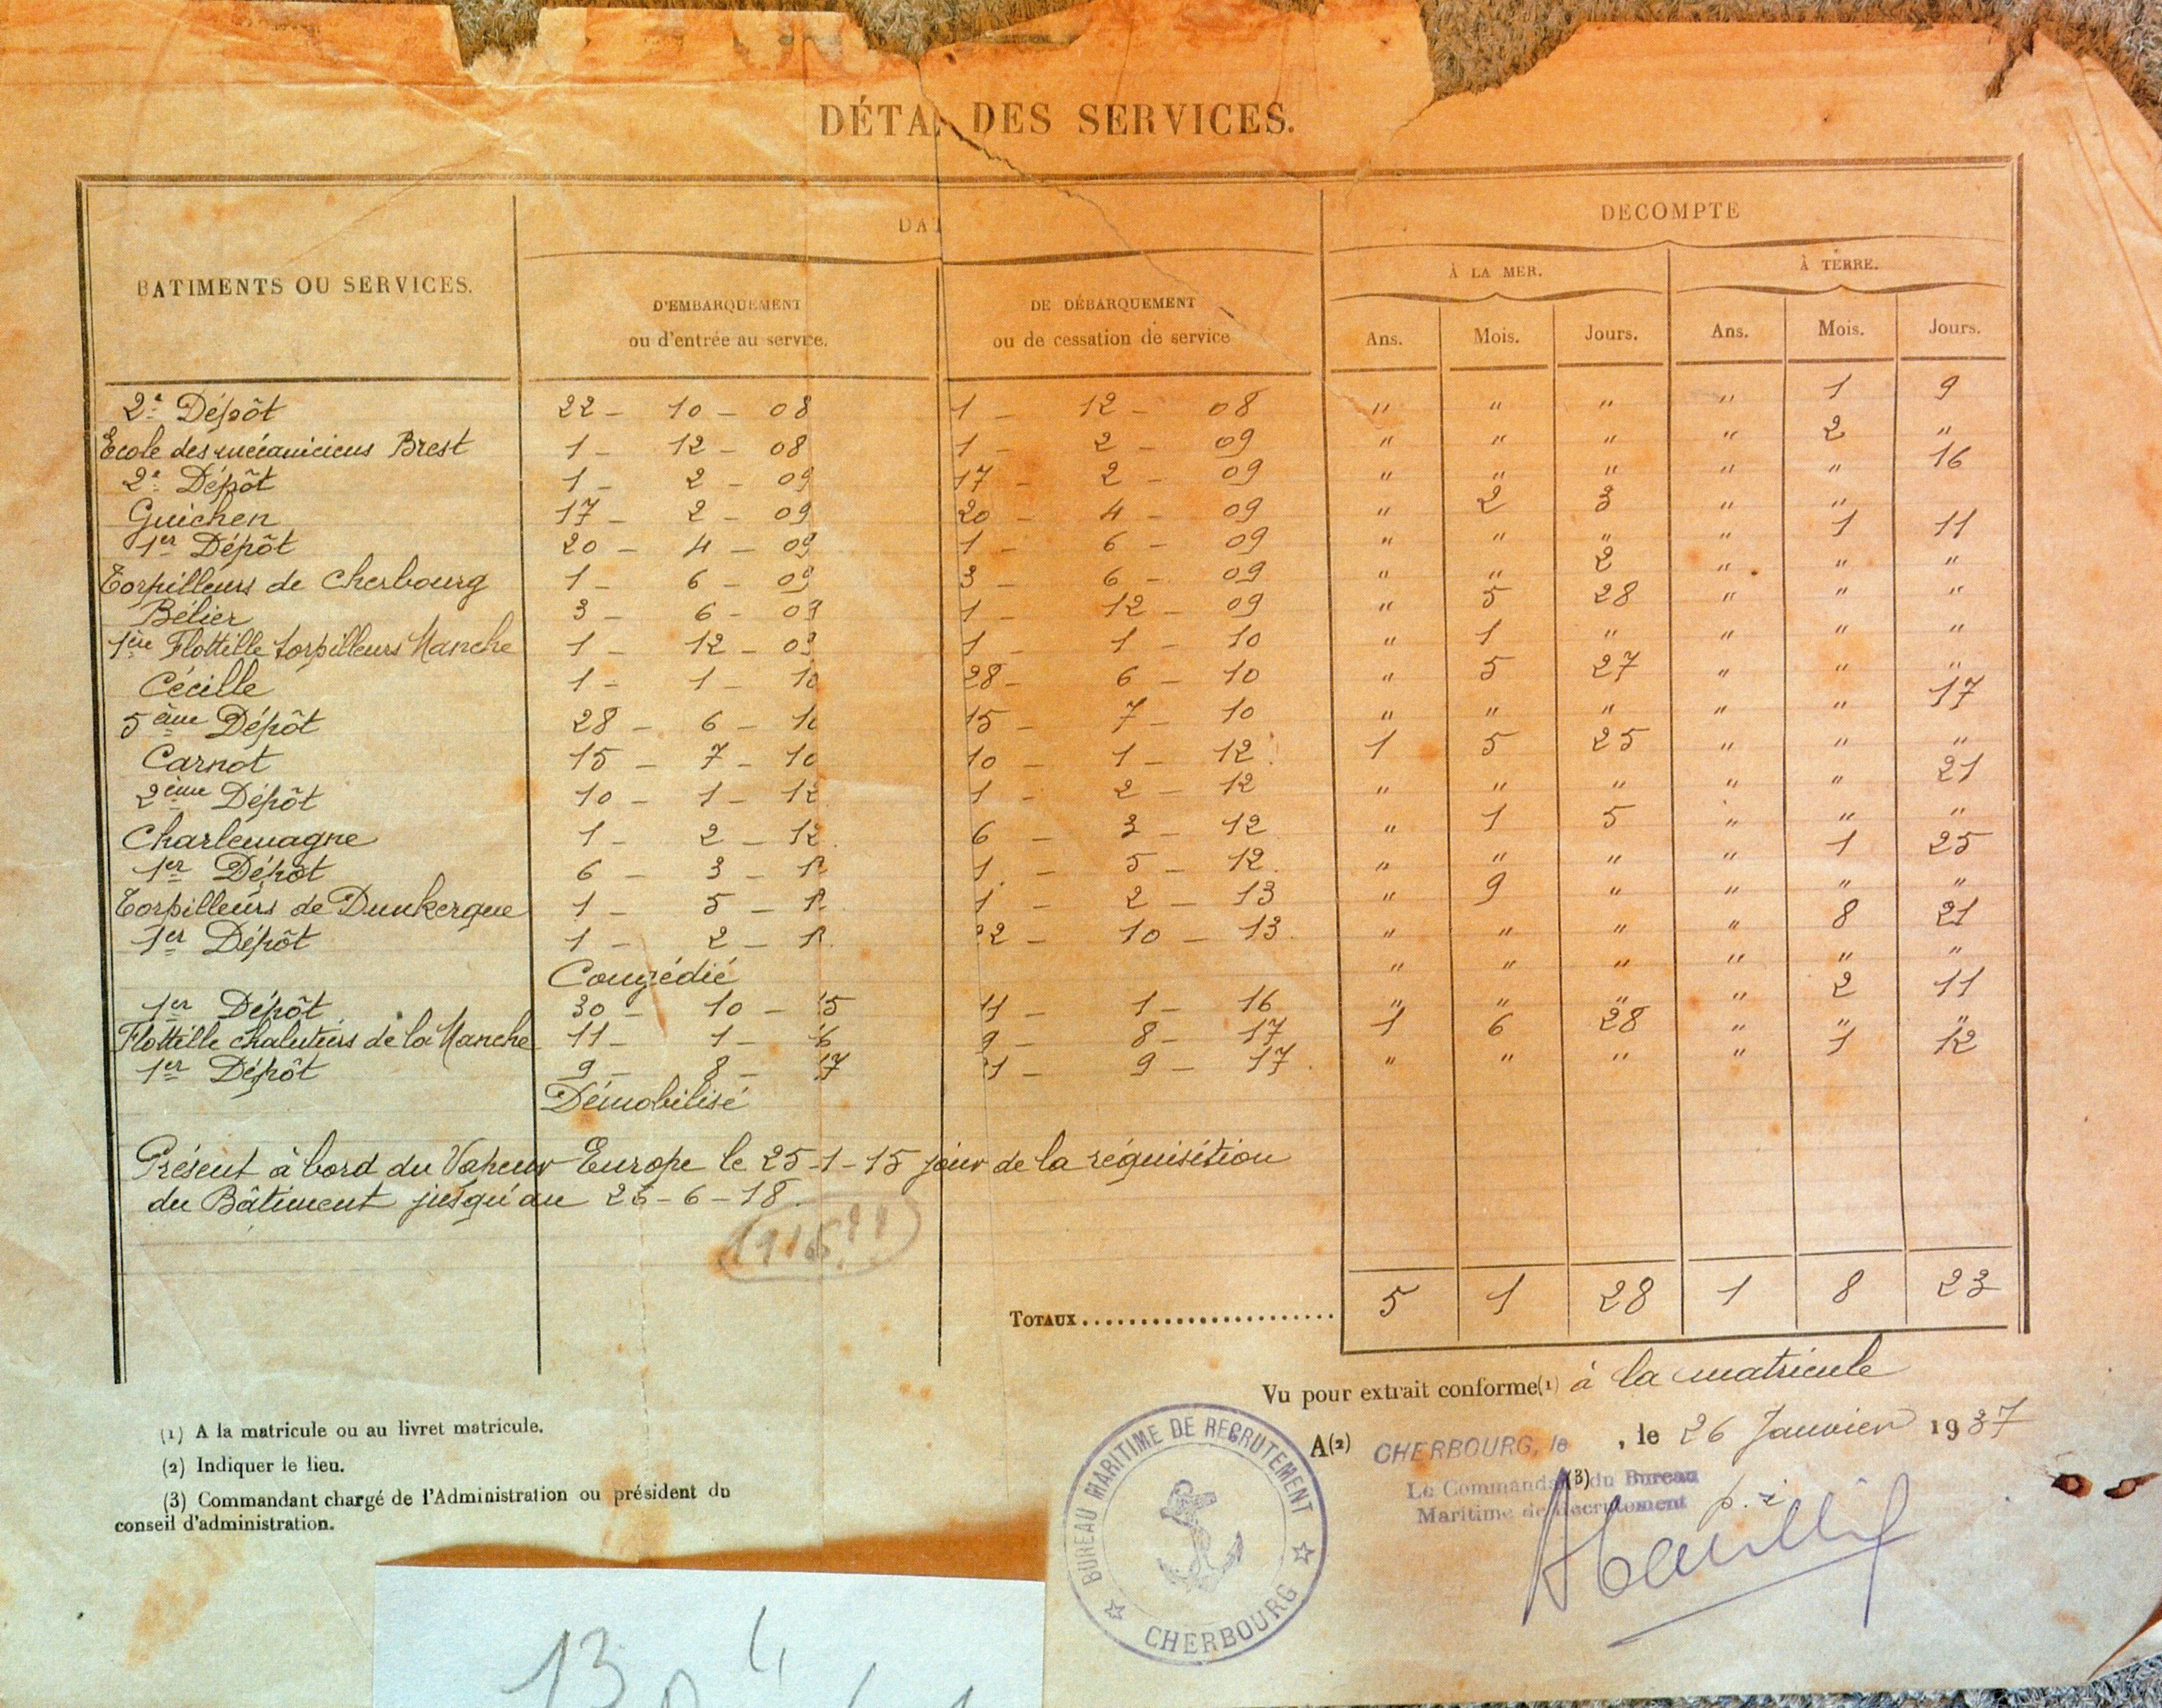 DÉTA DES SERVICES.
BATIMENTS OU SERVICES.
DAT
DECOMPTE
D'EMBARQUEMENT
ou d'entrée au service.
DE DÉBARQUEMENT
ou de cessation de service
À LA MER.
À TERRE.
Ans. Mois. Jours. Ans. Mois. Jours.
2e Dépôt 22 - 10 - 08 1 - 12 - 08 " " " " 1 9
Ecole des mécaniciens Brest 1 - 12 - 08 1 - 2 - 09 " " " " 2 "
2e Dépôt 1 - 2 - 09 17 - 2 - 09 " " " " " 16
Guichen 17 - 2 - 09 20 - 4 - 09 " 2 3 " "
1er Dépôt 20 - 4 - 09 1 - 6 - 09 " " " " 1 11
Torpilleurs de Cherbourg 1 - 6 - 09 3 - 6 - 09 " " 2 " " "
Bélier 3 - 6 - 09 1 - 12 - 09 " 5 28 " " "
1ère Flottille torpilleurs Manche 1 - 12 - 09 1 - 1 - 10 " 1 " " " "
Cécille 1 - 1 - 10 28 - 6 - 10 " 5 27 " " "
5ème Dépôt 28 - 6 - 10 15 - 7 - 10 " " " " " 17
Carnot 15 - 7 - 10 10 - 1 - 12 1 5 25 " " "
2ème Dépôt 10 - 1 - 12 1 - 2 - 12 " " " " " 21
Charlemagne 1 - 2 - 12 6 - 3 - 12 " 1 5 " " "
1er Dépôt 6 - 3 - 12 1 - 5 - 12 " " " " 1 25
Torpilleurs de Dunkerque 1 - 5 - 12 1 - 2 - 13 " 9 " " " "
1er Dépôt 1 - 2 - 22 - 10 - 13 " " " " 8 21
Congédié " " " " " "
1er Dépôt 30 - 10 - 15 11 - 1 - 16 " " " " 2 11
Flottille chalutiers de la Manche 11 - 1 - 16 9 - 8 - 17 1 6 28 " " "
1er Dépôt 9 - 8 - 17 21 - 9 - 17 " " " " 1 12
Démobilisé
Présent à bord du Vapeur Europe le 25-1-15 jour de la réquisition
du Bâtiment jusqu'au 26-6-18.
TOTAUX 5 1 28 1 8 23
Vu pour extrait conforme(1) à la matricule
A(2) CHERBOURG, le , le 26 Janvier 1937
(3)
Le Commandant du Bureau
Maritime de Recrutement p. i
(1) A la matricule ou au livret matricule.
(2) Indiquer le lieu.
(3) Commandant chargé de l'Administration ou président du
conseil d'administration.
BUREAU MARITIME DE RECRUTEMENT
CHERBOURG
13